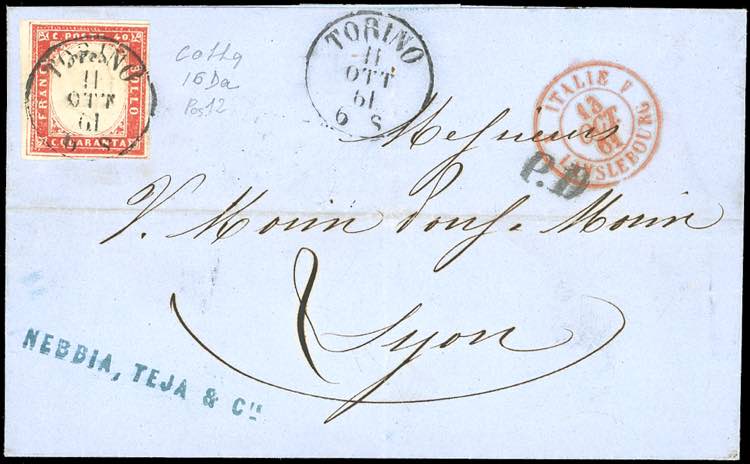 C. POSTE 40
FRANCOBOLLO
C. QUARANTA
TORINO
11
OTT
61
6 S
16Da
Pos. 12
TORINO
11
OTT
61
6 S
ITALIE
13
OCT
61
LANSLEBOURG
P.D
Messieurs
V. Morin Morin
Lyon
NEBBIA, TEJA & Cⁱᵃ